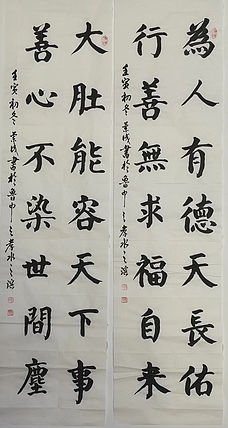 為人有德天長佑
行善無求福自来
壬寅初冬書於魯中之孝水之濱
大肚能容天下事
善心不染世間塵
壬寅初冬書於魯中之孝水之濱